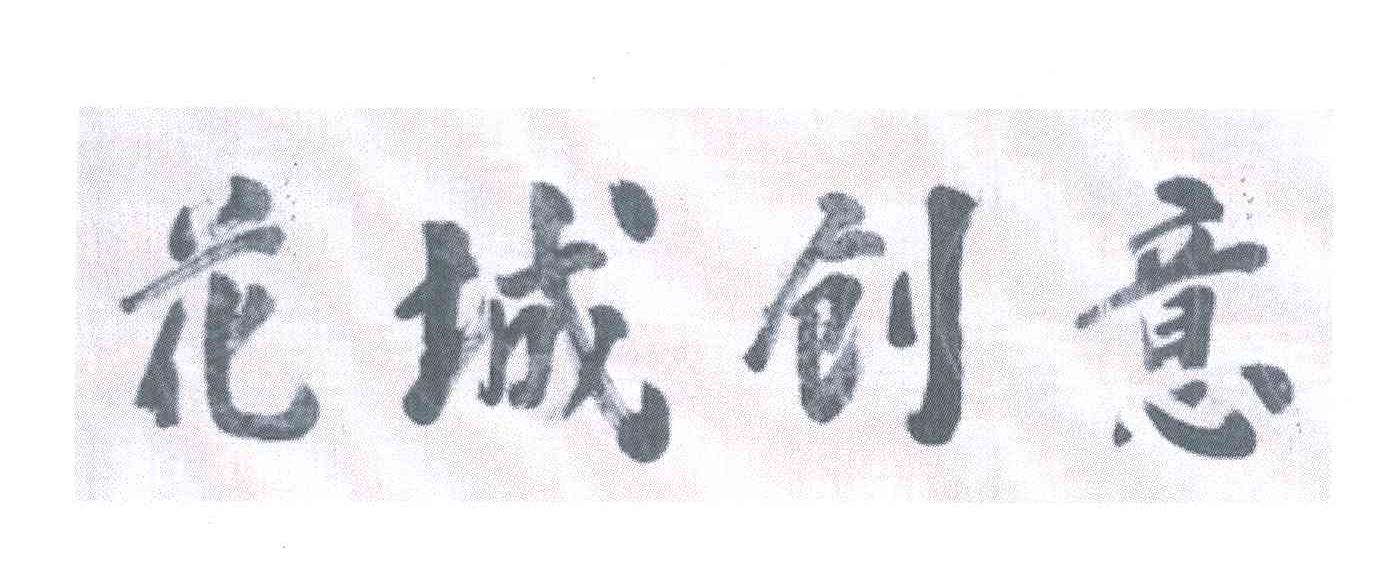 花城创意